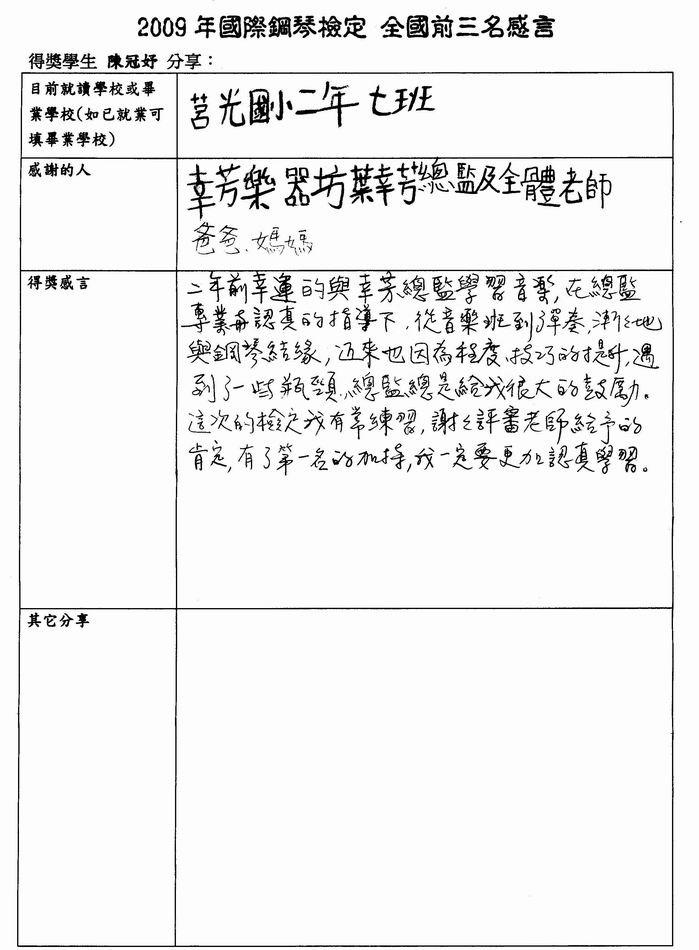 2009 年國際鋼琴檢定 全國前三名感言
得獎學生 陳冠妤 分享：
目前就讀學校或畢
業學校(如已就業可
填畢業學校)
莒光國小二年七班
感謝的人
幸芳樂器坊葉幸芳總監及全體老師
爸爸、媽媽
得獎感言
二年前幸運的與幸芳總監學習音樂，在總監
專業與認真的指導下，從音樂班到彈奏，漸漸地
與鋼琴結緣，近來也因為程度、技巧的提升，遇
到了一些瓶頸，總監總是給我很大的鼓勵。
這次的檢定我有常練習，謝謝評審老師給予的
肯定，有了第一名的加持，我一定要更加認真學習。
其它分享